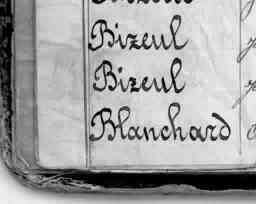 Bizeul
Bizeul
Blanchard